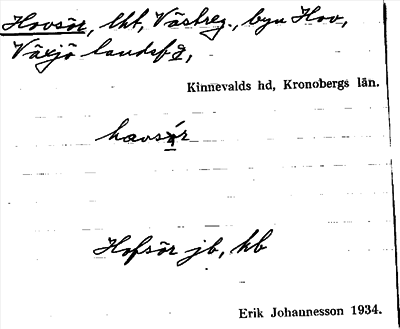 Hovsör, lht, Västreg., byn Hov,
Växjö landsf
Kinnevalds hd, Kronobergs län.
Hofsör jb, kb
Erik Johannesson 1934.